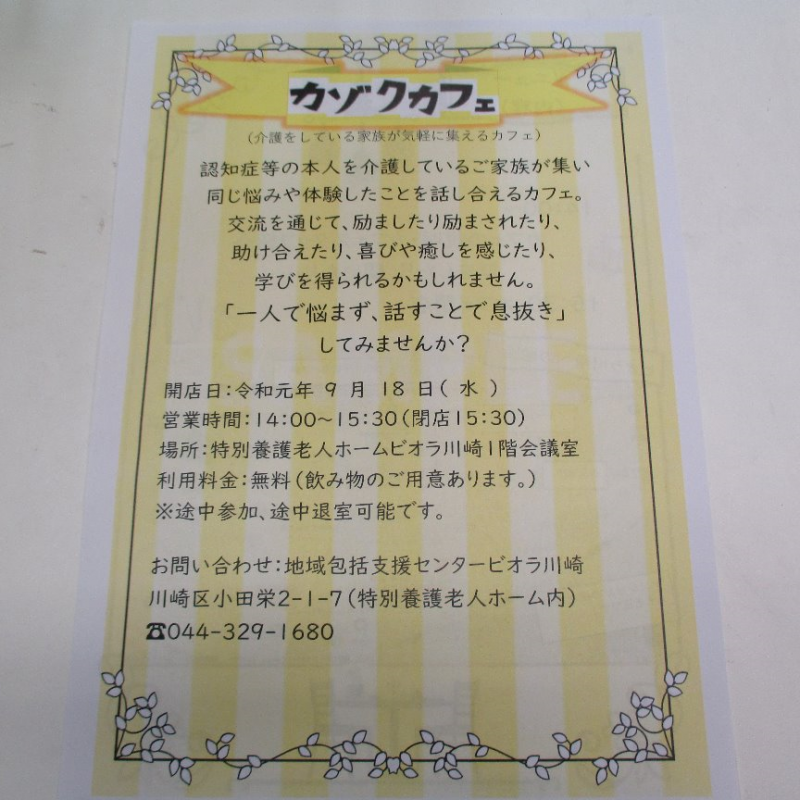 カゾクカフェ
（介護をしている家族が気軽に集えるカフェ）
認知症等の本人を介護しているご家族が集い
同じ悩みや体験したことを話し合えるカフェ。
交流を通じて、励ましたり励まされたり、
助け合えたり、喜びや癒しを感じたり、
学びを得られるかもしれません。
「一人で悩まず、話すことで息抜き」
してみませんか？
開店日：令和元年 9 月 18 日（ 水 ）
営業時間：14：00～15：30（閉店15：30）
場所：特別養護老人ホームビオラ川崎1階会議室
利用料金：無料（飲み物のご用意あります。）
※途中参加、途中退室可能です。
お問い合わせ：地域包括支援センタービオラ川崎
川崎区小田栄2-1-7（特別養護老人ホーム内）
☎044-329-1680